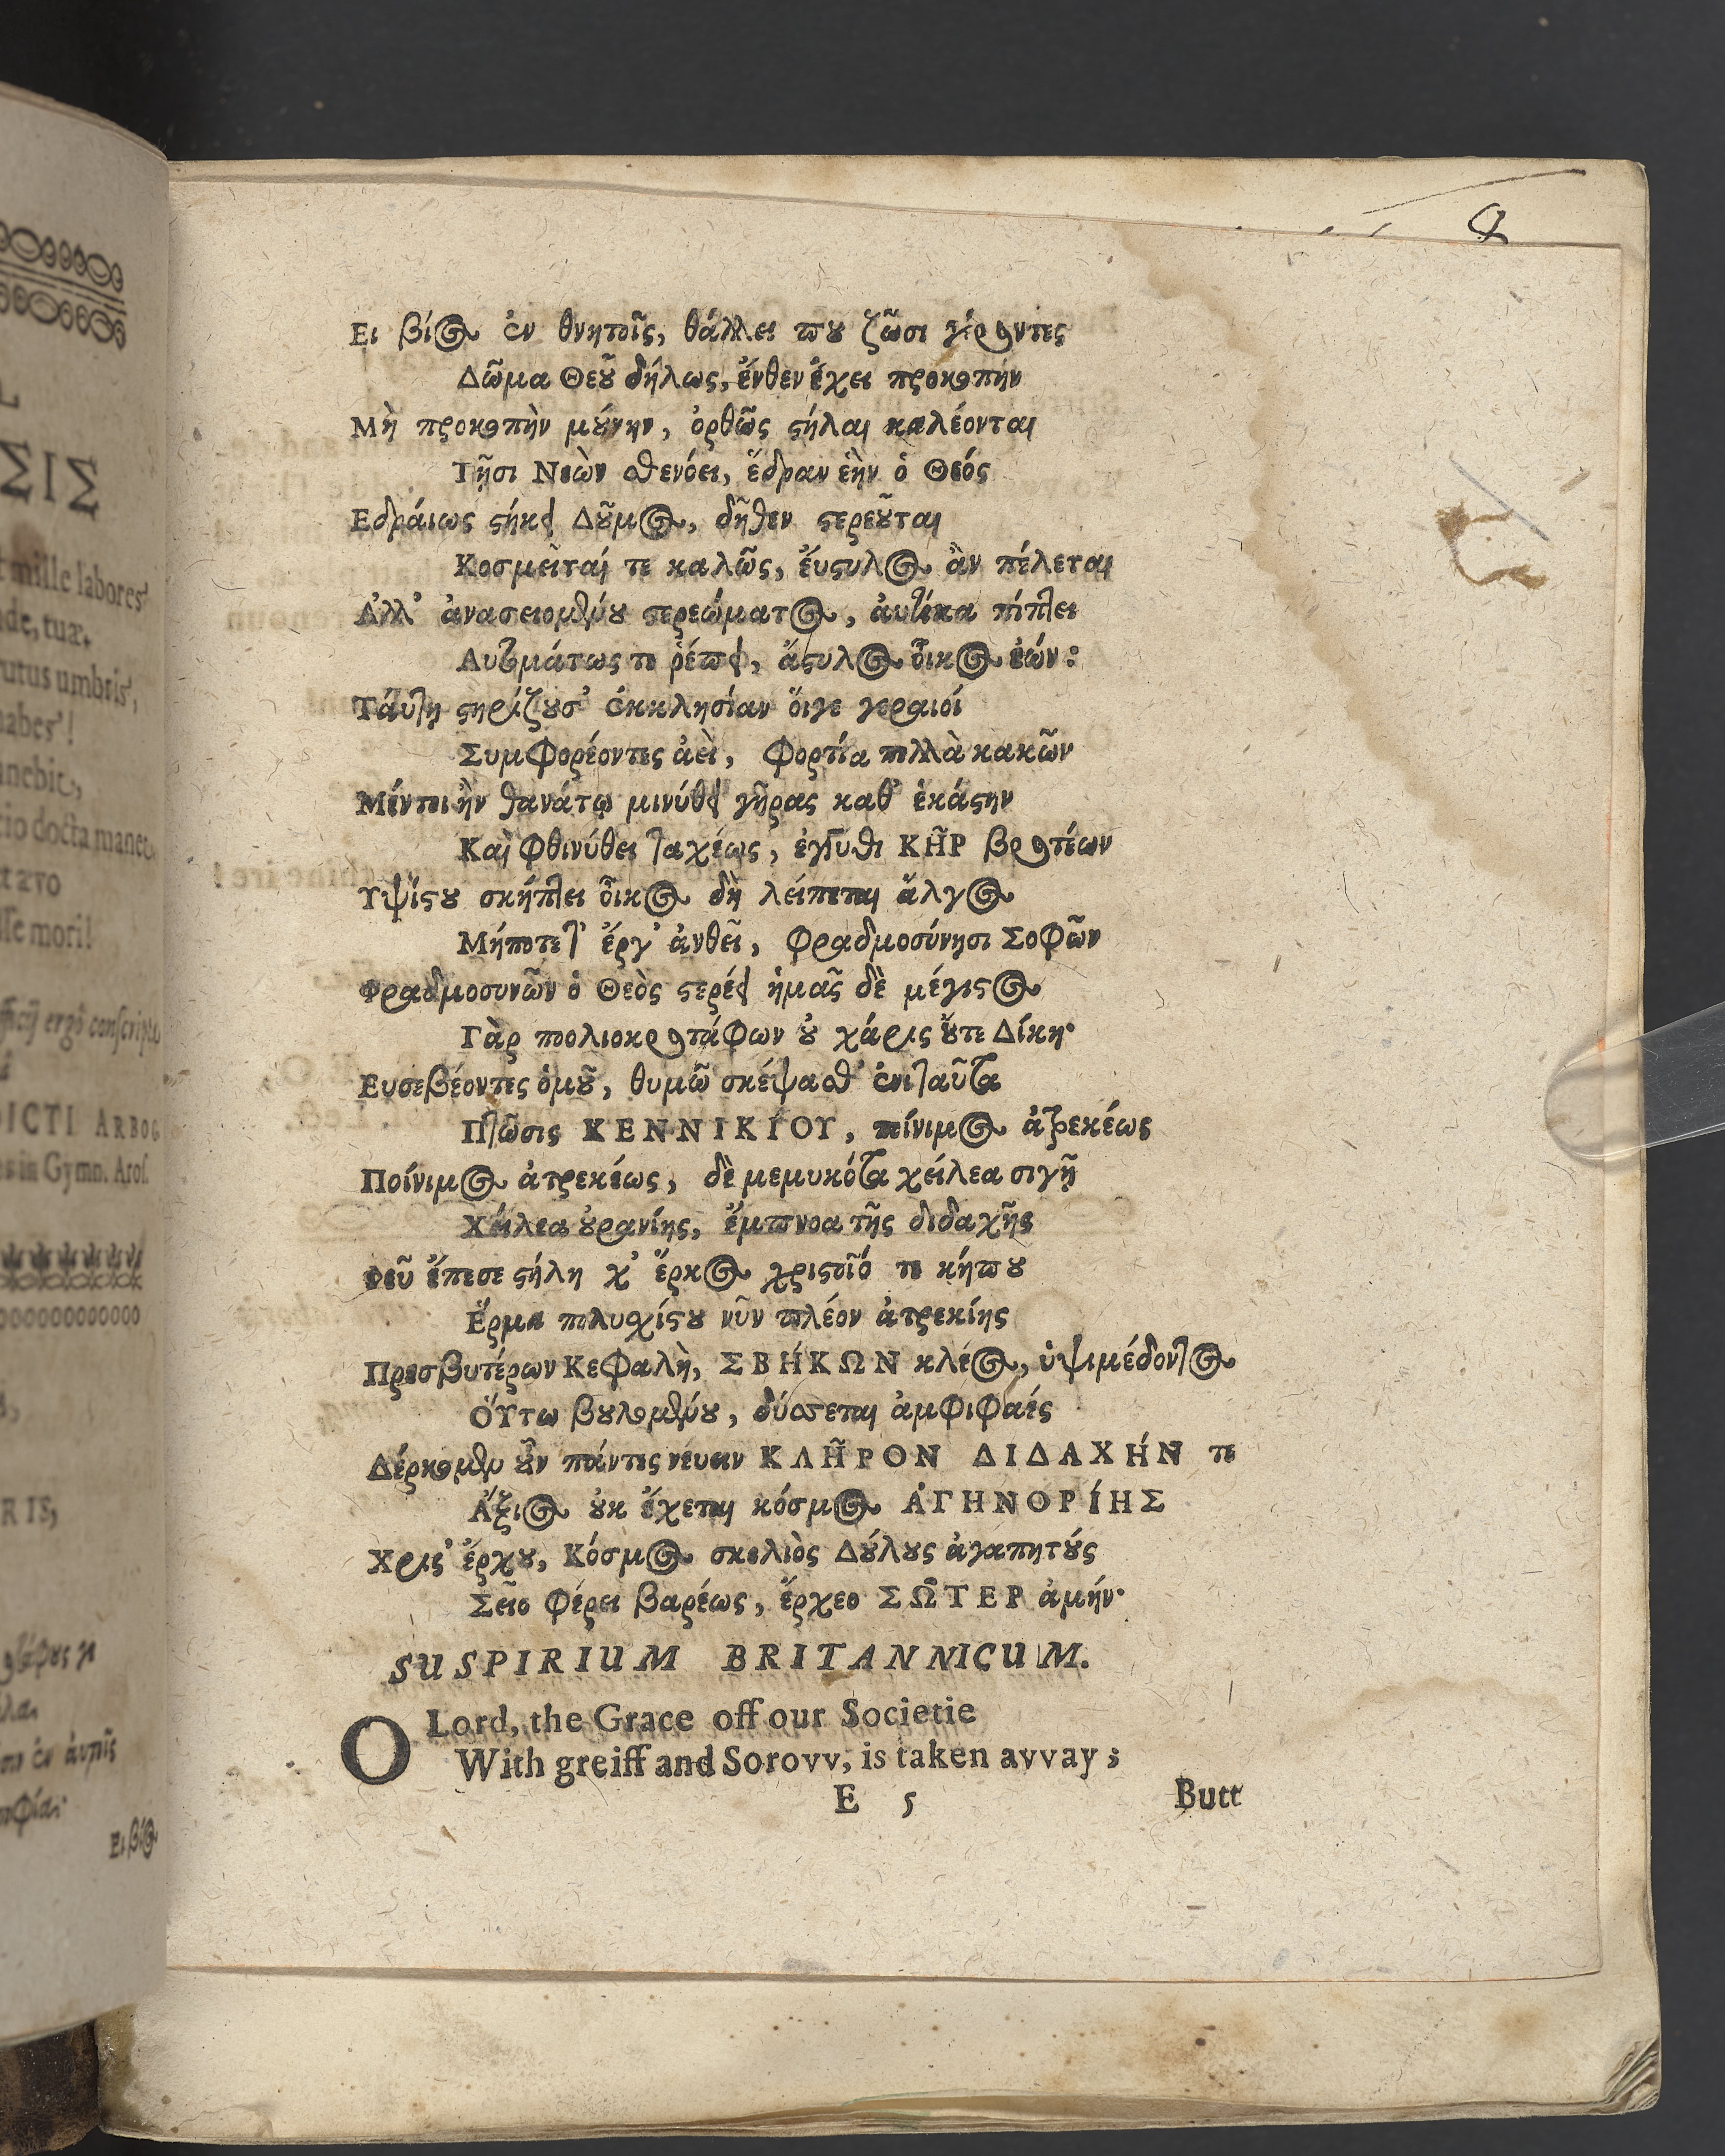 Ει βίος ἐν θνητοῖς, θάλλει που ζῶσι γέροντες
Δῶμα Θεοῦ δήλως, ἔνθεν ἔχει προκοπήν
Μὴ προκοπὴν μούνην, ὀρθῶς ϛήλαι καλέονται
Τῇσι Νεὼν σθενόει, ἕδραν ἑὴν ὁ Θεός
Εδράιως ϛήκει Δοῦμος, δῆθεν ϛερεοῦται
Κοσμεῖταί τε καλῶς, ἔυϛυλος ἂν πέλεται
Ἀλλ' ἀνασειομένου στερεώματος, ἀυτίκα πίπτει
Αυτομάτως τε ῥέπει, ἄϛυλος οἶκος ἐών:
Τάυτη ϛηρίζουσ' ἐκκλησίαν ὅιγε γεραιοί
Συμφορέοντες ἀεὶ, φορτία πολλὰ κακῶν
Μέντοι ἢν θανάτῳ μινύθει γῆρας καθ' ἑκάϛην
Καὶ φθινύθει ταχέως, ἐγγύθι ΚῊΡ βροτέων
Υψίϛου σκήπτει οἶκος δὴ λείπεται ἄλγος
Μήποτε τ' ἔργ' ἀνθεῖ, Φραδμοσύνησι Σοφῶν
Φραδμοσυνῶν ὁ Θεὸς ϛερέει ἡμᾶς δὲ μέγιϛος
Γὰρ πολιοκροτάφων οὐ χάρις οὔτε Δίκη·
Ευσεβέοντες ὁμοῦ, θυμῶ σκέψασθ' ἐνὶ ταῦτα
Πτῶσις ΚΕΝΝΙΚΊΟΥ, ποίνιμος ἀτρεκέως
Ποίνιμος ἀτρεκέως, δὲ μεμυκότα χείλεα σιγῇ
Χείλεα οὐρανίης, ἔμπνοα τῆς διδαχῆς
Φεῦ ἔπεσε ϛήλη χ' ἕρκος χριϛοῖό τε κήπου
Ἕρμα πολυσχίϛου νῦν πλέον ἀτρεκίης
Πρεσβυτέρων Κεφαλὴ, ΣΒΉΚΩΝ κλέος, ὑψιμέδοντος
Ὅυτω βουλομένου, δύσσεται ἀμφιφαές
Δέρκομεν οὖν πάντες νέυειν ΚΛΗ͂ΡΟΝ ΔΙΔΑΧΉΝ τε
Ἄξιος οὐκ ἔχεται κόσμος ἈΓΗΝΟΡΊΗΣ
Χριϛ' ἔρχου, Κόσμος σκολιὸς Δούλους ἀγαπητούς
Σεῖο φέρει βαρέως, ἔρχεο ΣΩ͂ΤΕΡ ἀμήν·
SUSPIRIUM BRITANNICUM.
O Lord, the Grace off our Societie
With greiff and Sorovv, is taken avvay;
E 5
Butt
mille labores
tuæ,
umbris,
docta manet
mori!
ergò conscript
DICTI ARBOG
in Gymn. Aros.
RIS,
Ει βίος